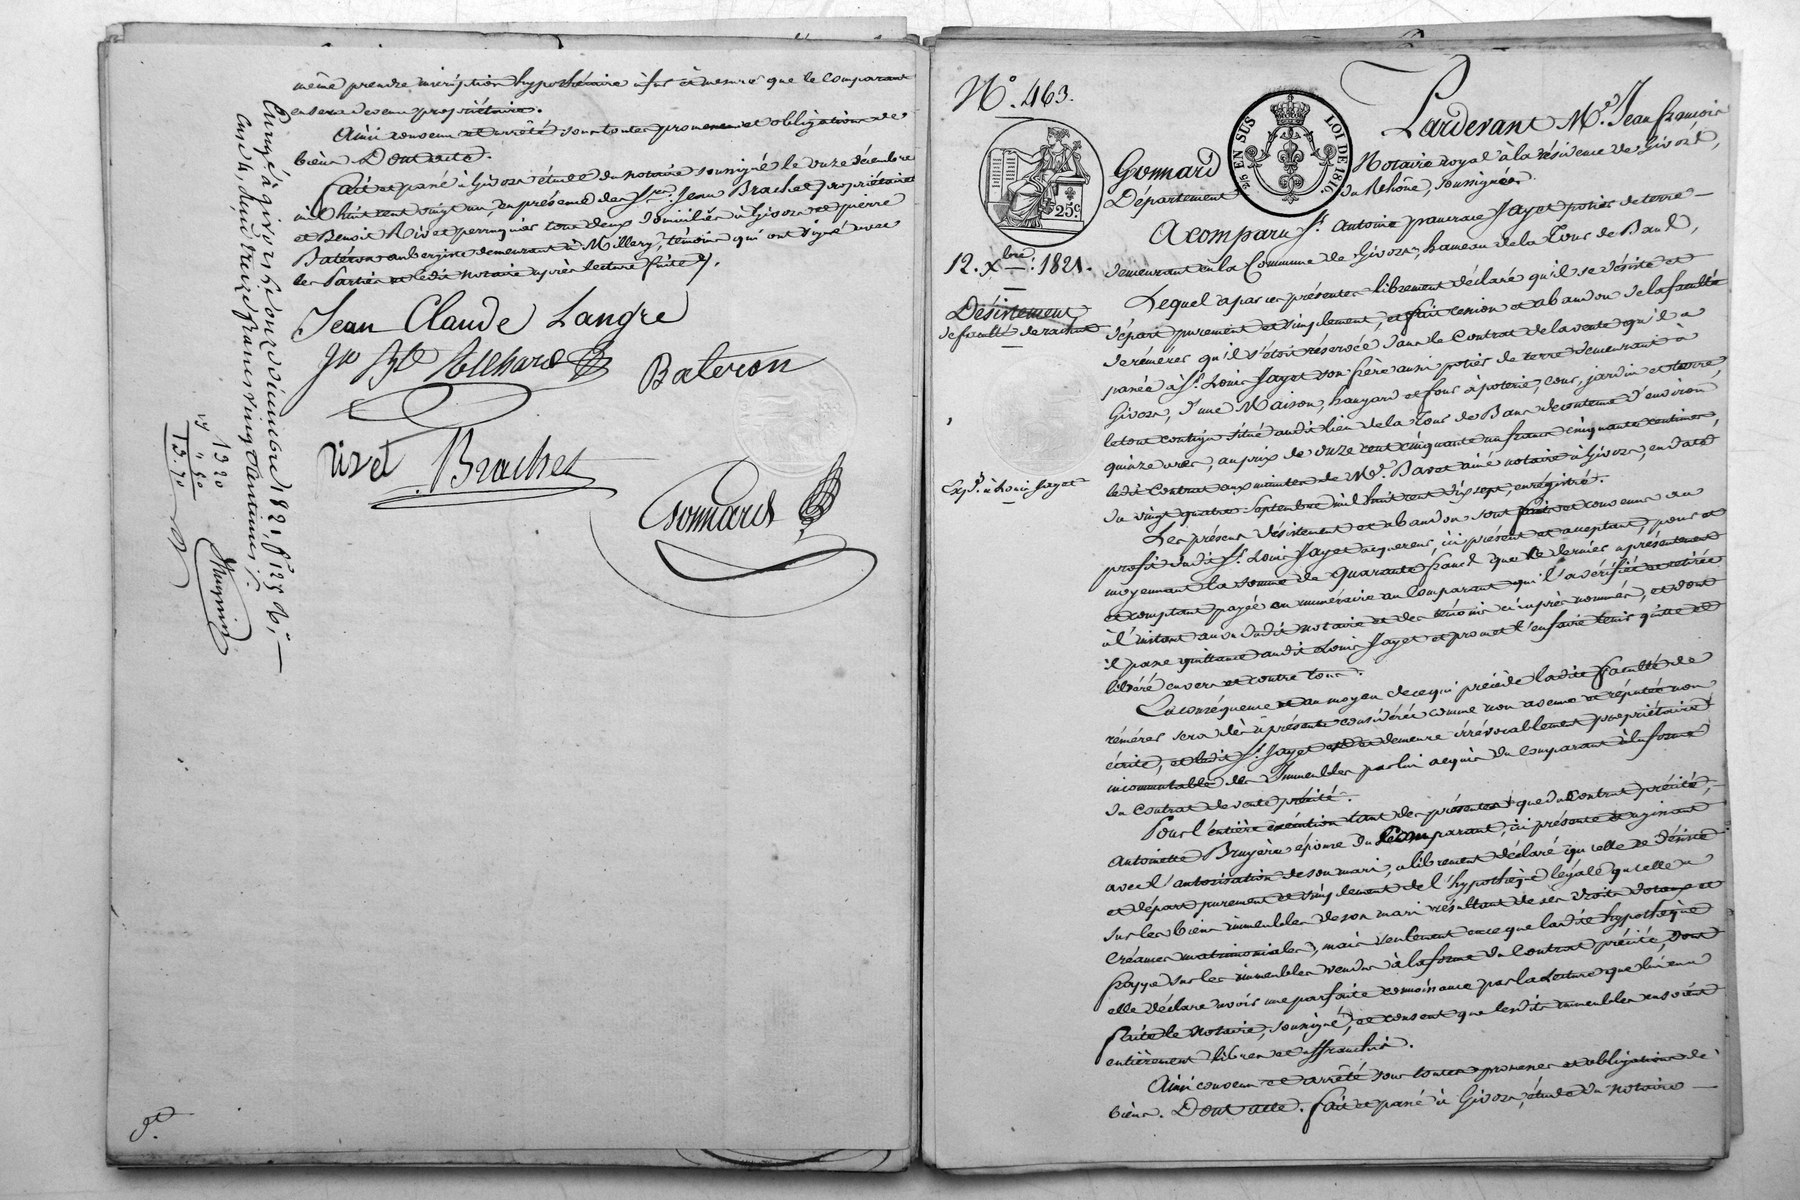 même prendre inscription hypothécaire à fur et à mesure que le comparant
en sera devenu propriétaire.
Ainsi convenu et arrêté sous toutes promesses et obligations de
biens Dont acte.
fait et passé à Givors étude du notaire soussigné le onze décembre
mil huit cent vingt un, en présence des Srs. Jean Brachet propriétaire
et Benoit Rivet perruquier tous deux domiciliés à Givors et pierre
Bateron aubergiste demeurant à Millery, témoins qui ont signé avec
les Parties et ledit notaire après lecture faite
Jean Claude Langre
Bateron
rivet Brachet
Gonnard
Enregé à givors le onze décembre 1821, fo 125
francs vingt centimes
1320
13.70
No. 463.
25c
25 EN SUS LOI DE 1816.
12. Xbre. 1821.
Désistement
de faculté de rachat
Expd. à Louis Jayet
Pardevant Me. Jean françois
Gonnard Notaire royal à la résidence de Givors,
Département du Rhône, soussigné.
A comparu Sr. Antoine pancrace Jayet potier de terre
demeurant en la Commune de Givors, hameau de la Tour de Bans,
Lequel a par ces présentes librement déclaré qu'il se désiste et
départ purement et simplement, et fait cession et abandon de la faculté
de réméré qu'il s'étoit réservée dans le Contrat de la vente qu'il a
passée à Sr. Louis Jayet son frère aussi potier de terre demeurant à
Givors, d'une Maison, hangard et four à poterie, cour, jardin et terre,
le tout contigu situé audit lieu de la Tour de Bans de contenue d'environ
quinze ares, au prix de onze cent cinquante un francs cinquante centimes,
ledit Contrat aux minutes de Me. Baret ainé notaire à Givors, en date
du vingt quatre Septembre mil huit cent dix sept, enregistré.
Les présents désistement et abandon sont faits et convenus au
profit dudit Sr. Louis Jayet acquereur, ici présent et acceptant, pour et
moyennant la somme de quarante francs que ce dernier a présentement
et comptant payée en numéraire au Comparant qui l'a vérifiée et retirée
à l'instant au vu dudit notaire et des témoins ci après nommés, et dont
il passe quittance audit Louis Jayet et promet l'en faire tenir quitte et
libéré envers et contre tous.
En conséquence et au moyen de ce qui précède ladite faculté de
réméré sera dès à présent considérée comme non avenue et réputée non
écrite, et ledit Sr. Jayet est et demeure irrévocablement propriétaire
incommutable des Immeubles par lui acquis du comparant à la forme
du contrat de vente précité.
Pour l'entière exécution tant des présentes que du Contrat précité,
antoinette Bruyère épouse du Comparant, ici présente et agissant
avec l'autorisation de son mari, a librement déclaré qu'elle se désiste
et départ purement et simplement de l'hypothèque légale qu'elle a
sur les biens immeubles de son mari résultant de ses droits dotaux et
Créances matrimoniales, mais seulement en ce que ladite hypothèque
frappe sur les immeubles vendus à la forme du Contrat précité, dont
elle déclare avoir une parfaite connoissance par la Lecture que lui en a
faite le Notaire, soussigné, et consent que lesdits immeubles en soient
entièrement libres et affranchis.
Ainsi convenu et arrêté sous toutes promesses et obligations de
biens. Dont acte. fait et passé à Givors, étude du notaire